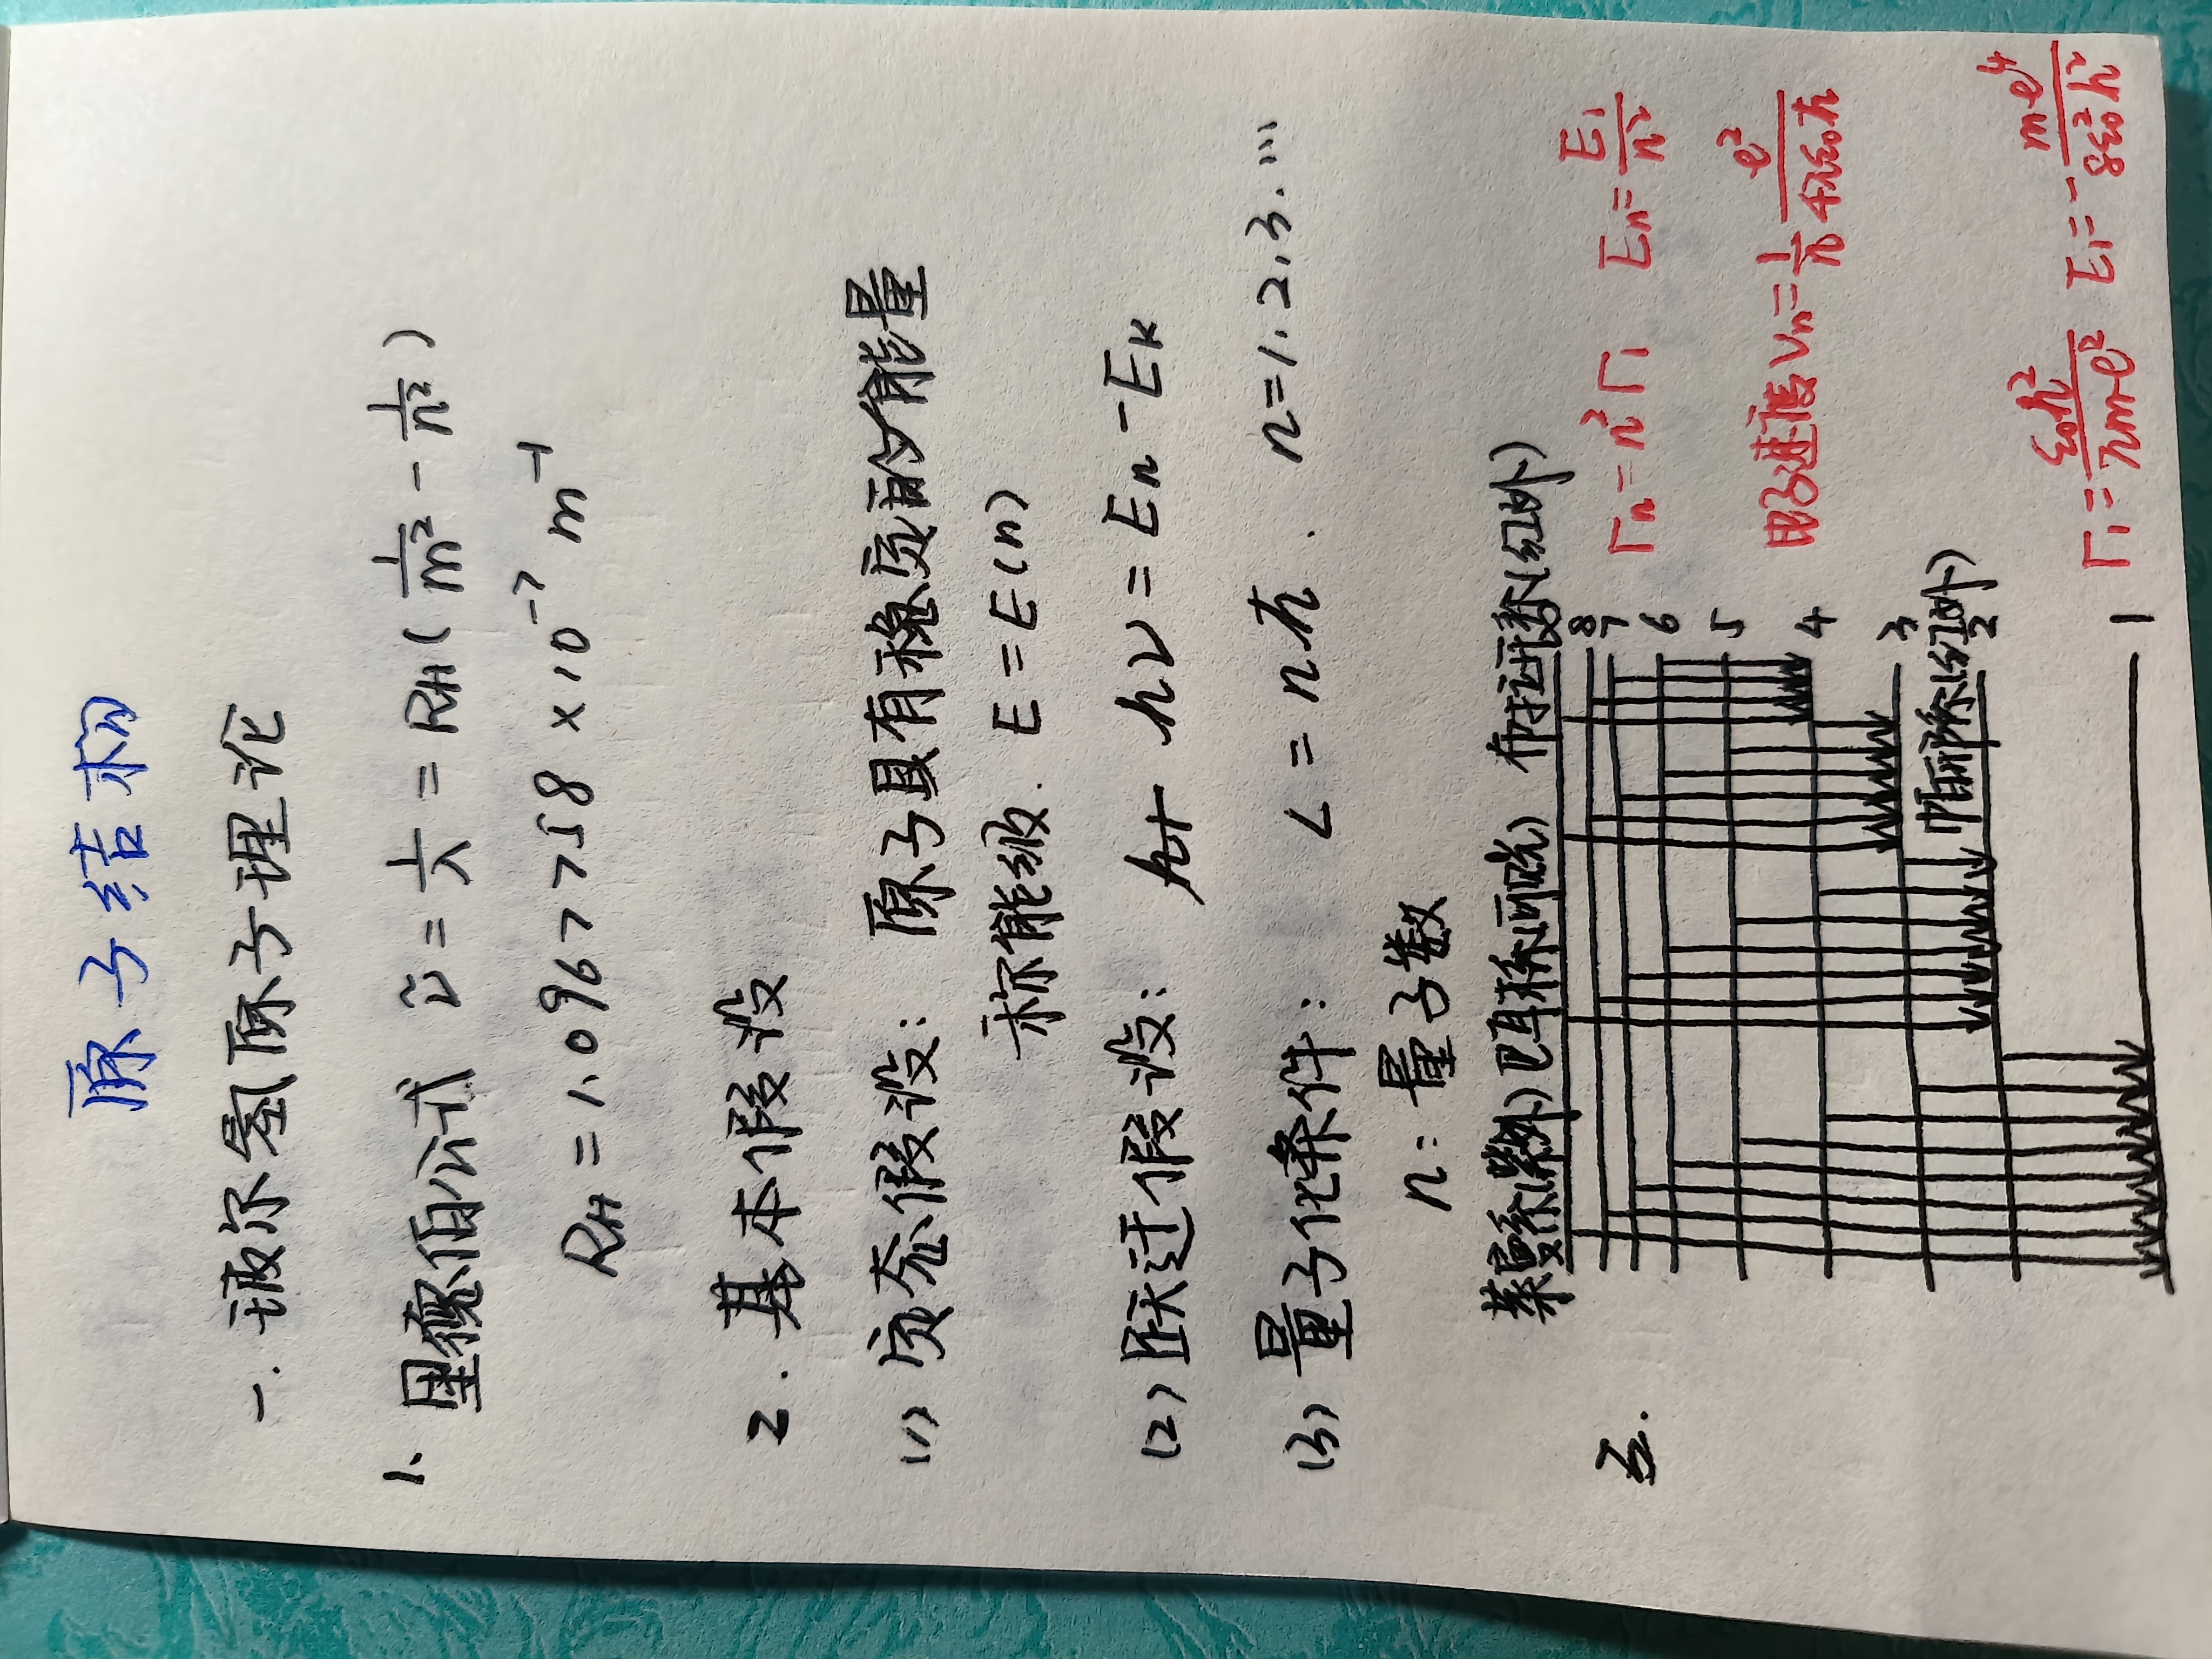 原子结构
一. 玻尔氢原子理论
1. 里德伯公式 ν̃ = 1/λ = R_H ( 1/m² - 1/n² )
R_H = 1.0967758 × 10⁻⁷ m⁻¹
2. 基本假设
(1) 定态假设: 原子具有稳定的能量
称能级. E = E(n)
(2) 跃迁假设: hν = En - Ek
(3) 量子化条件: L = nℏ. n=1.2,3.…
n: 量子数
莱曼系(紫外) 巴耳末系(可见光) 布拉开系(红外)
∞
8
7
三. rn = n² r1 En = E1/n²
6
5
电子速度 Vn = 1/n e²/4πε0ℏ
4
3
帕邢系(红外)
2
r1 = ε0h²/πme² E1 = - me⁴/8ε0²h²
1